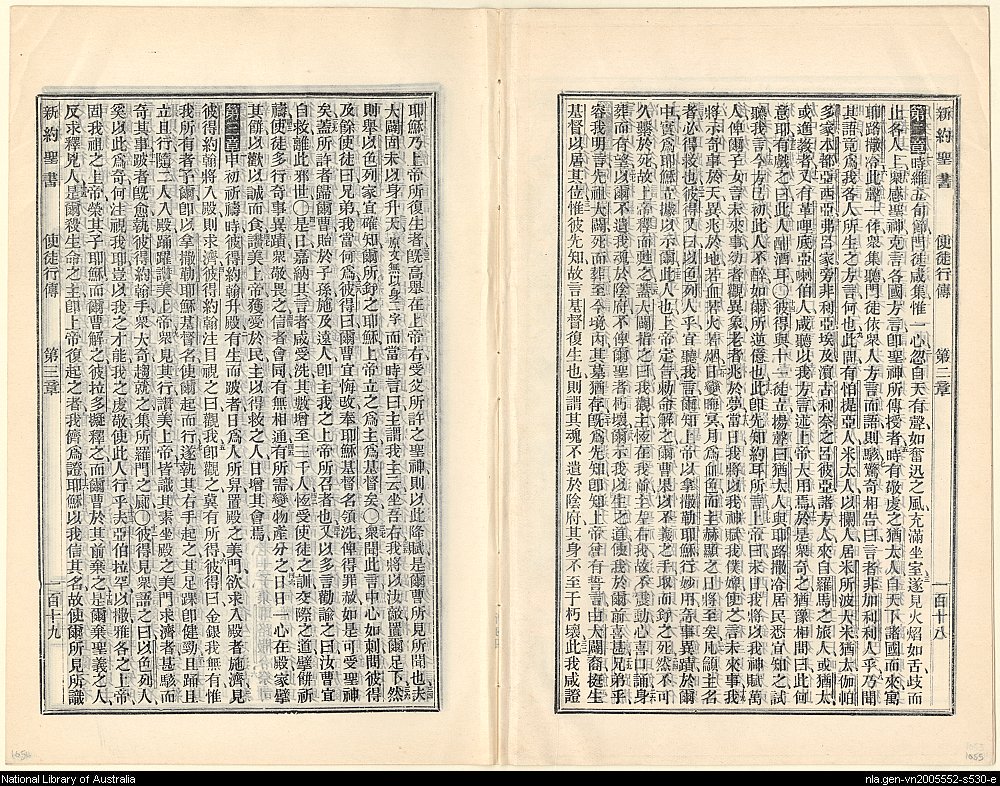 新約聖書 使徒行傳 第二章 一百十八
第二章 時維五旬節門徒咸集惟一心忽自天有聲如奮迅之風充滿坐室遂見火焰如舌歧而
止各人上衆感聖神克言各國方言卽聖神所傳授者時有敬虔之猶太人自天下諸國而來寓
耶路撒冷此聲一作衆集聽門徒依衆人方言而語則駭驚奇相告曰言者非加利利人乎乃聞
其語竟爲我各人所生之方言何也此間有怕提亞人米太人以攔人居米所波大米猶太伽帕
多家本都亞西亞弗呂家旁非利亞埃及濵古利奈之呂彼亞諸方人來自羅馬之旅人或猶太
或進教者又有革哩底亞喇伯人咸聽以我方言述上帝大用焉於是衆奇之猶豫相問曰此何
意耶有戲之曰此人酣酒耳〇彼得與十一徒立揚聲曰猶太人與耶路撒冷居民悉宜知之試
聽我言今方巳初此人不醉如爾所逆億也此卽先知約耳所言上帝曰末日我將以我神賦萬
人俾爾子女言未來事幼者觀異象老者兆於夢當日我將以我神賦我僕婢使之言未來事我
將示奇事於天異兆於地若血若火若烟日變晦冥月爲血色而主赫顯之日將至矣凡籲主名
者必得救也彼得又曰以色列人乎宜聽我言爾知上帝以拿撒勒耶穌行妙用奇事異蹟於爾
中實爲耶穌立據以示爾此人也上帝定旨
久繫於死故上帝釋而甦之蓋大闢指之曰我觀主恆在我前主左右我不致震動心喜口誦身
葬而有望以爾不遺我魂於陰府不俾爾聖者朽壞爾示我以生之道使我於爾前喜甚兄弟乎
容我明言先祖大闢死而葬至今境內其墓猶存旣爲先知卽知上帝曾有誓言由大闢裔挺生
基督以居其位惟彼先知故言基督復生也則謂其魂不遺於陰府其身不至于朽壞此我咸證
耶穌乃上帝所復生者旣高舉在上帝右受父所許之聖神則以此降賦是爾曹所見所聞也夫
大闢固未以身升天原文無以身二字而當時言曰主謂我主云坐吾右我將以汝敵置爾足下然
則舉以色列家宜確知爾所釘之耶穌上帝立之爲主爲基督矣〇衆聞此言中心如刺問彼得
及餘使徒曰兄弟我當何爲彼得曰爾曹宜悔改奉耶穌基督名領洗俾得罪赦如是可受聖神
矣蓋所許者歸爾曹貽於子孫施及遠人卽主我之上帝所召者也又以多言勸諭之曰汝曹宜
自救離此邪世〇是日嘉納其言者咸受洗其數增至三千人恆受使徒之訓交際之道擘餅祈
禱使徒多行奇事異蹟衆敬畏之信者會同有無相通有所需變物產分之日日一心在殿家擘
其餅以歡以誠而食讚美上帝獲愛於民主以得救之人日增其會焉
第三章 申初祈禱時彼得約翰升殿有生而跛者日爲人所舁置殿之美門欲求入殿者施濟見
彼得約翰將入殿則求濟彼得約翰注目視之曰觀我卽觀之冀有所得彼得曰金銀我無有惟
我所有者予爾卽以拿撒勒耶穌基督名使爾起而行遂執其右手起之其足踝卽健勁且躍且
立且行隨二人入殿踊躍讚美上帝衆見其行讚美上帝皆識其素坐殿之美門求濟者甚駭而
奇其事跛者旣愈執彼得約翰手衆大奇趨就之集所羅門之廊〇彼得見衆語之曰以色列人
奚以此爲奇何注視我耶豈以我之才能我之虔敬使此人行乎夫亞伯拉罕以撒雅各之上帝
固我祖之上帝榮其子耶穌而爾曹解之彼拉多擬釋之而爾曹於其前棄之是爾棄聖義之人
反求釋兇人是爾殺生命之主卽上帝復起之者我儕爲證耶穌以我信其名故使爾所見所識
新約聖書 使徒行傳 第三章 一百十九
1654
1655
National Library of Australia
nla.gen-vn2005552-s530-e